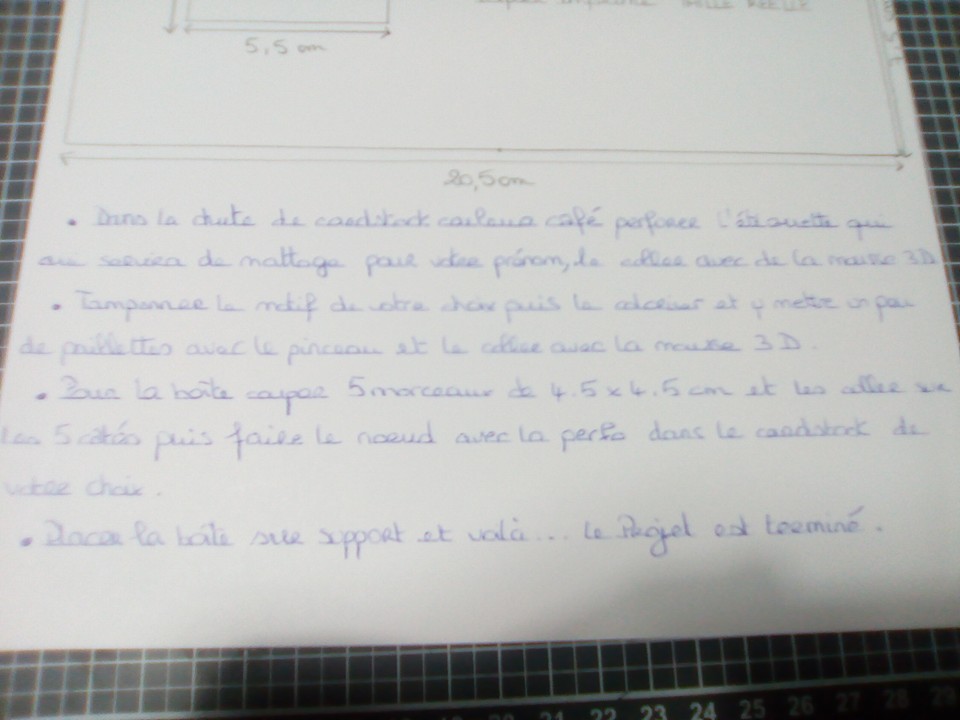 5,5 cm
20,5cm
• Dans la chute de cardstock couleur café perforer l'étiquette qui
qui servira de mattage pour votre prénom, le coller avec de la mousse 3D
• Tamponner le motif de votre choix puis le coloriser et y mettre un peu
de paillettes avec le pinceau et le coller avec la mousse 3D.
• Pour la boîte couper 5 morceaux de 4.5 x 4.5 cm et les coller sur
les 5 côtés puis faire le noeud avec la perfo dans le cardstock de
votre choix.
• Placer la boîte sur support et voilà... le Projet est terminé.
21 22 23 24 25 26 27 28 29